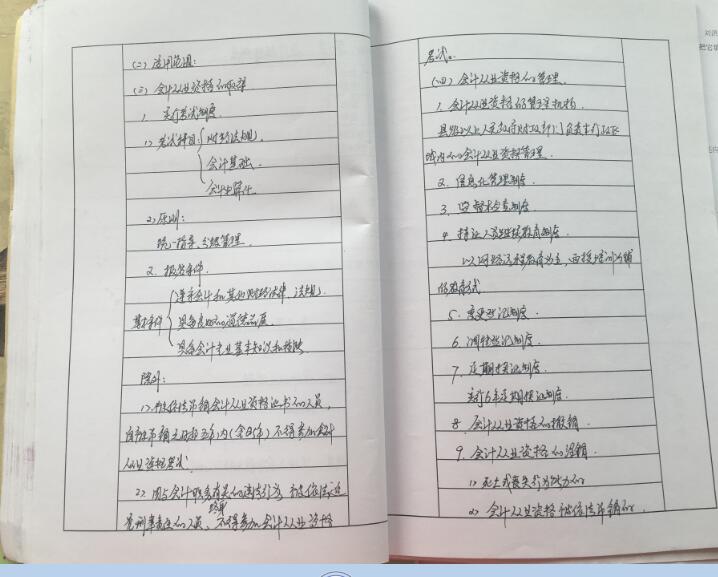 (二) 适用范围:
(三) 会计从业资格的取得
1. 实行考试制度
1) 考试科目: 财经法规.
会计基础.
会计电算化.
2) 原则:
统一指导, 分级管理.
2. 报名条件.
基本条件 遵守会计和其他财经法律、法规.
具备良好的道德品质
具备会计专业基本知识和技能
除外:
1) 被依法吊销会计从业资格证书的人员,
自被吊销之日起五年内(含5年)不得参加会计
从业资格考试.
2) 因与会计职务有关的违法行为 被依法追
究刑事责任的人员, 不得参加会计从业资格
考试。
(四) 会计从业资格的管理.
1. 会计从业资格的管理机构
县级以上人民政府财政部门负责本行政区
域内的会计从业资格管理.
2. 信息化管理制度.
3. 监督检查制度
4. 持证人员继续教育制度.
以网络远程教育为主, 面授培训为辅
的教育方式
5. 变更登记制度.
6. 调转登记制度.
7. 定期换证制度.
实行6年定期换证制度.
8. 会计从业资格的撤销.
9. 会计从业资格的注销.
1) 死亡或丧失行为能力的
2) 会计从业资格被依法吊销的.